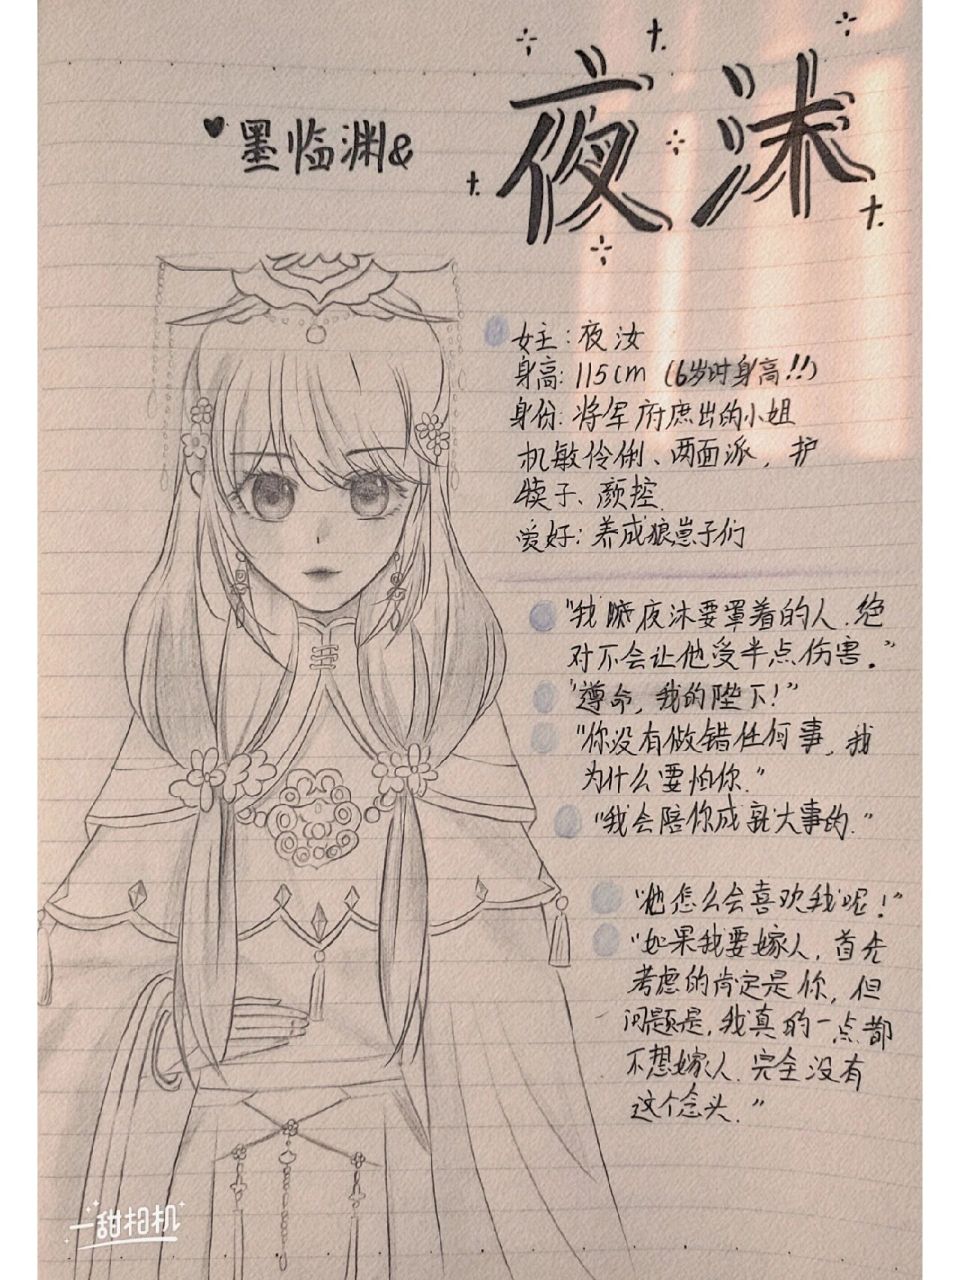 墨临渊&
夜沐
女主：夜汝
身高：115cm（6岁时身高!!）
身份：将军府庶出的小姐
机敏伶俐、两面派，护
犊子、颜控
爱好：养成狼崽子们
"我 夜沐要罩着的人.绝
对不会让他受半点伤害."
"遵命，我的陛下!"
"你没有做错任何事，我
为什么要怕你."
"我会陪你成就大事的."
"他怎么会喜欢我呢!"
"如果我要嫁人，首先
考虑的肯定是你，但
问题是，我真的一点都
不想嫁人.完全没有
这个念头."
一甜相机